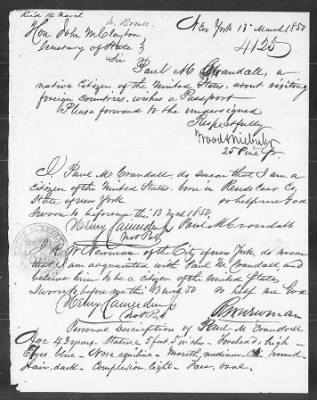 Recd 14 March
New York 13 March 1850
Hon John M Clayton
4125
Secretary of State
Sir
Paul M Crandall, a
native Citizen of the United States, about visiting
foreign Countries, wishes a Passport
Please forward to the undersigned
Respectfully
25 Pine St
I, Paul M Crandall, do swear that I am a
Citizen of the United States, born in Rensselaer Co
State of New York
so help me God
Sworn to before me this 13 Mch 1850,
Paul M. Crandall
Henry
Not Pub
I, Newman of the City of New York, do swear
that I am acquainted with Paul M Crandall and
believe him to be a Citizen of the United States
Sworn to before me this 13 Mch 50
so help me God
Henry
Newman
Not Pub
Personal Description of Paul M. Crandall
Age 43 years Stature 5 feet Inches - Forehead, high -
Eyes blue - Nose, aquiline - Mouth, medium - Chin round
Hair, dark - Complexion, light - Face, oval -